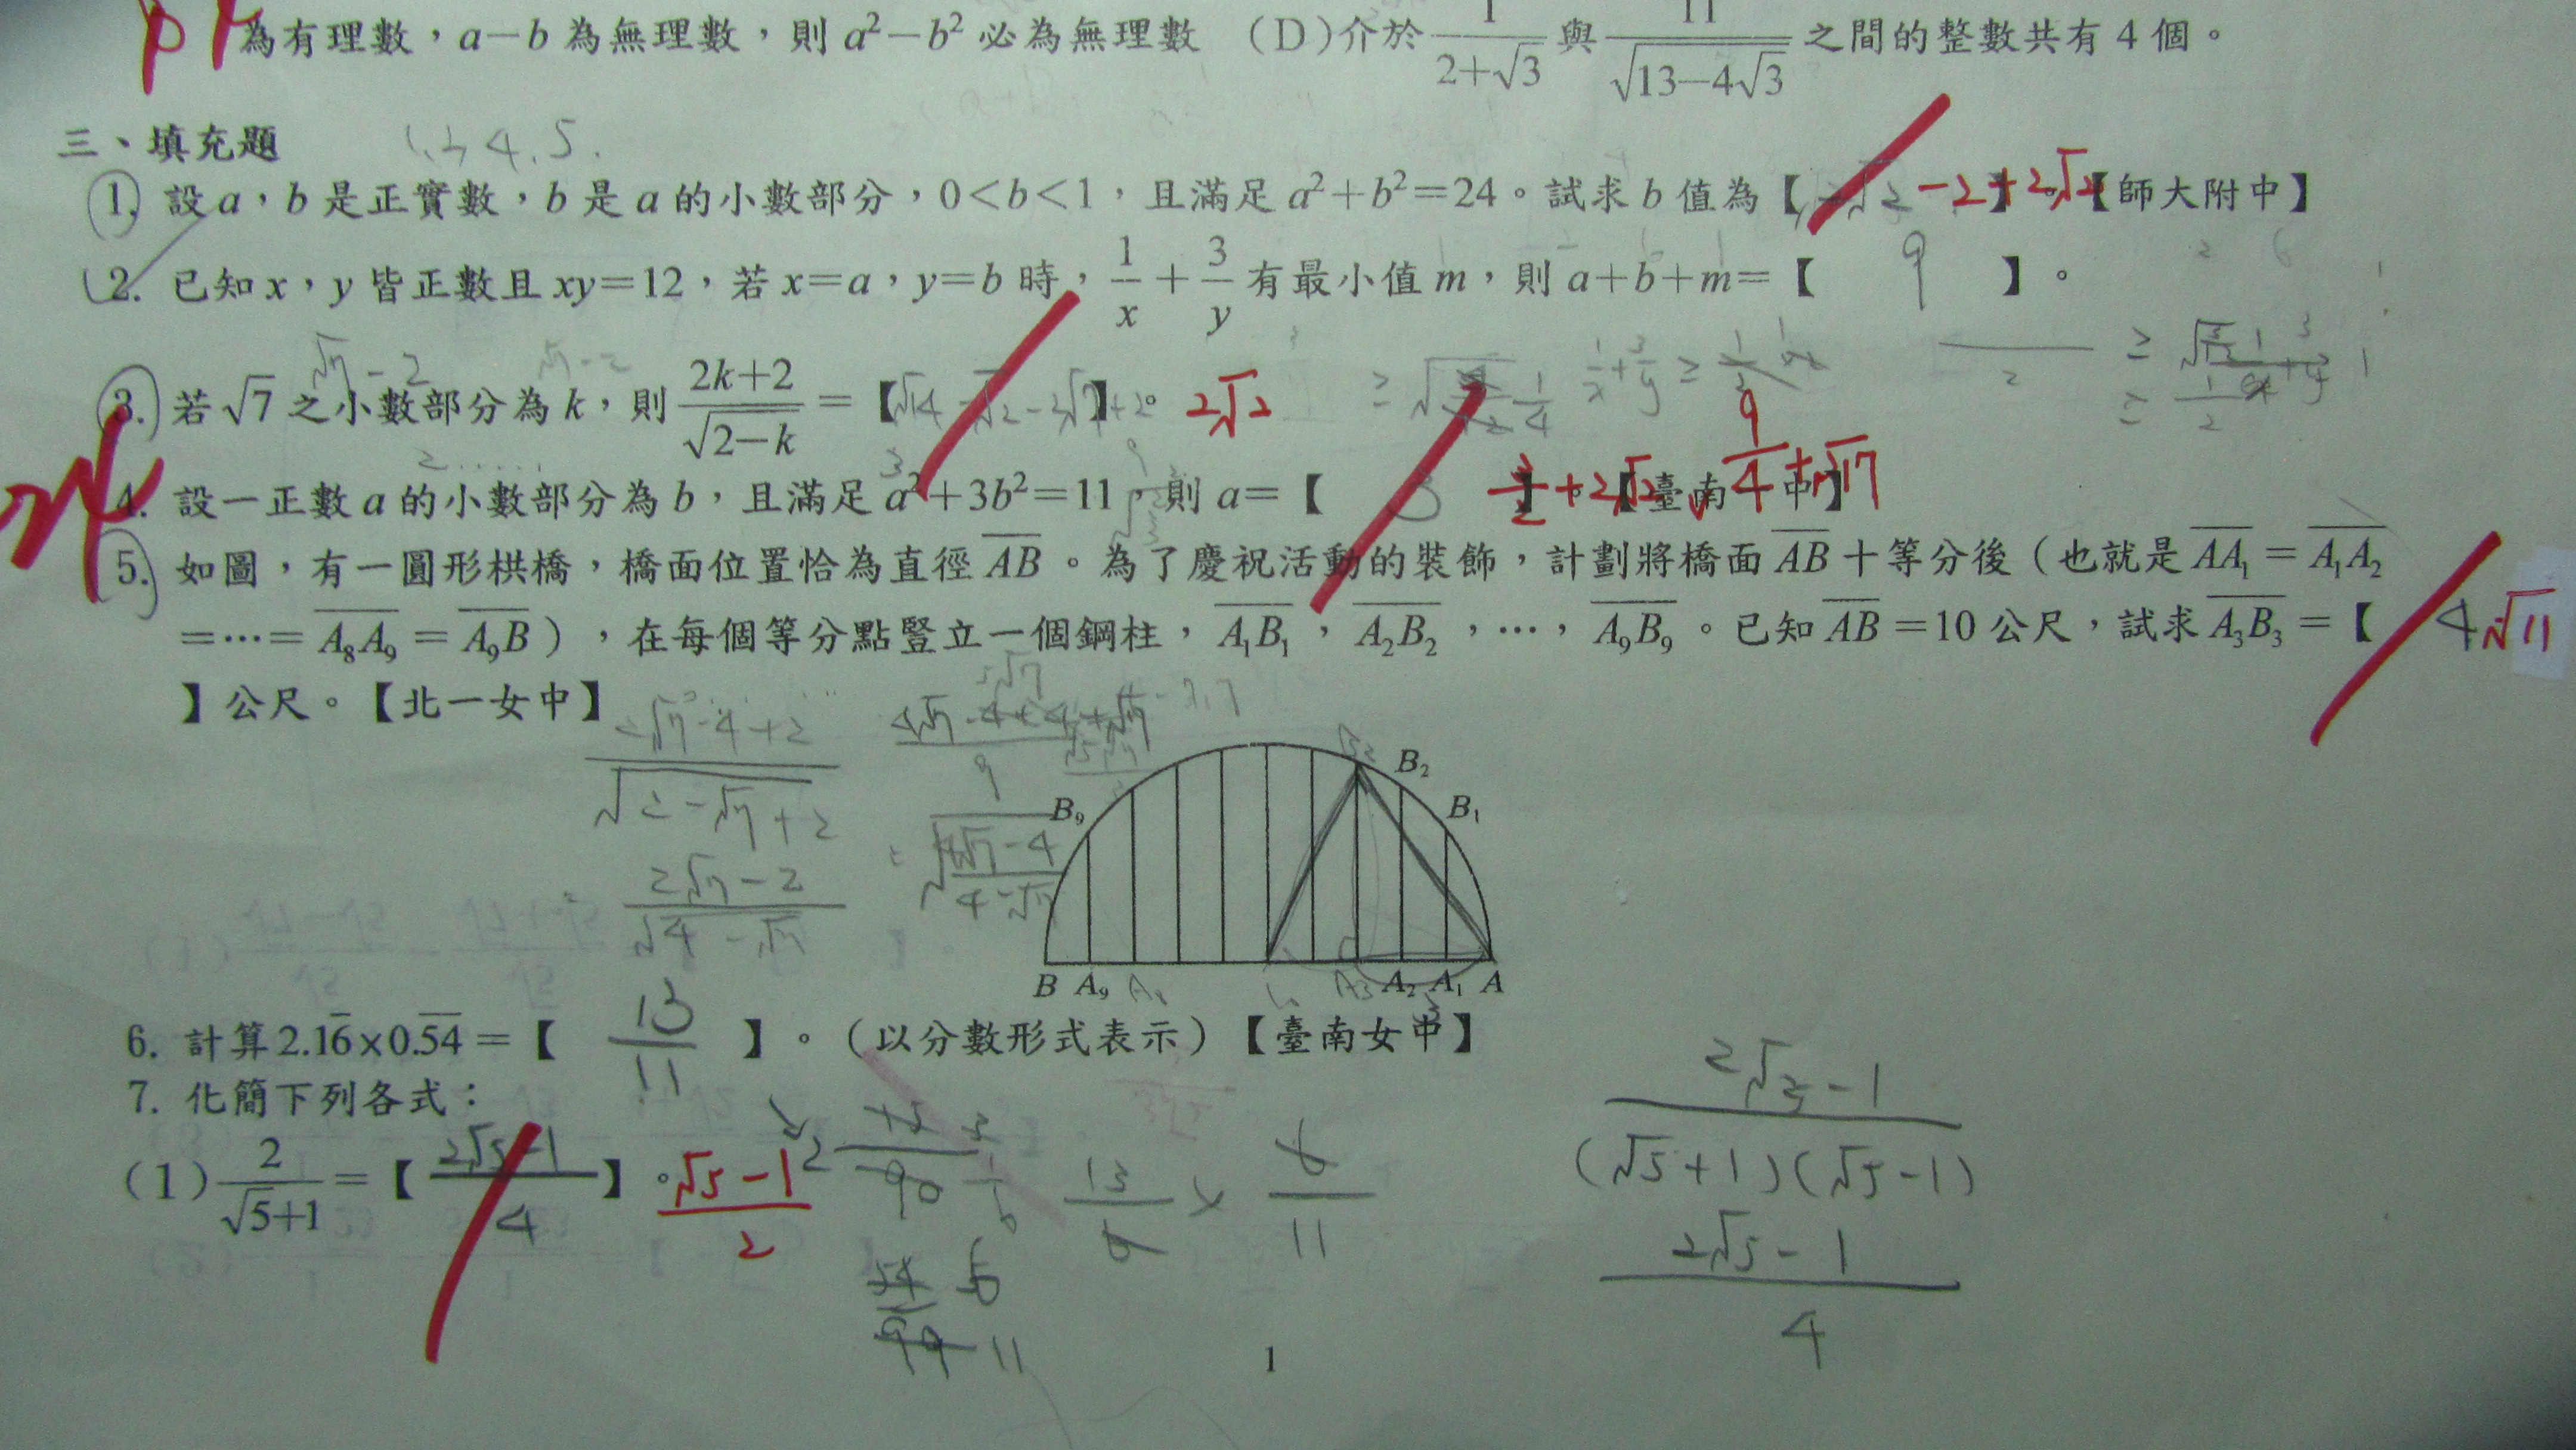 為有理數，a－b 為無理數，則 a²－b² 必為無理數 (D)介於 1/(2+√3) 與 11/√(13－4√3) 之間的整數共有 4 個。
三、填充題 1, 2, 4, 5.
1. 設 a，b 是正實數，b 是 a 的小數部分，0＜b＜1，且滿足 a²＋b²＝24。試求 b 值為【 －2＋2√2 】。【師大附中】
2. 已知 x，y 皆正數且 xy＝12，若 x＝a，y＝b 時，1/x ＋ 3/y 有最小值 m，則 a＋b＋m＝【 9 】。
√7－2
3. 若 √7 之小數部分為 k，則 (2k＋2)/√(2－k) ＝【 √14 －√2－2√7＋2 】。 2√2
4. 設一正數 a 的小數部分為 b，且滿足 a²＋3b²＝11，則 a＝【 3 】。【臺南 中】
5. 如圖，有一圓形栱橋，橋面位置恰為直徑 AB。為了慶祝活動的裝飾，計劃將橋面 AB 十等分後（也就是 AA₁＝A₁A₂
＝…＝A₈A₉＝A₉B），在每個等分點豎立一個鋼柱，A₁B₁，A₂B₂，…，A₉B₉。已知 AB＝10 公尺，試求 A₃B₃＝【 4 √11
】公尺。【北一女中】
2√7－4＋2
√2－√7＋2
2√7－2
√4－√7
B₂
B₁
B₉
B A₉ A₃ A₂ A₁ A
6. 計算 2.16̅×0.5̅4̅＝【 13/11 】。（以分數形式表示）【臺南女中】
7. 化簡下列各式：
(1) 2/(√5＋1)＝【 (2√5－1)/4 】。 (√5－1)/2
13/6 × 6/11
54 6
99 11
2√5－1
(√5＋1)(√5－1)
2√5－1
4
1